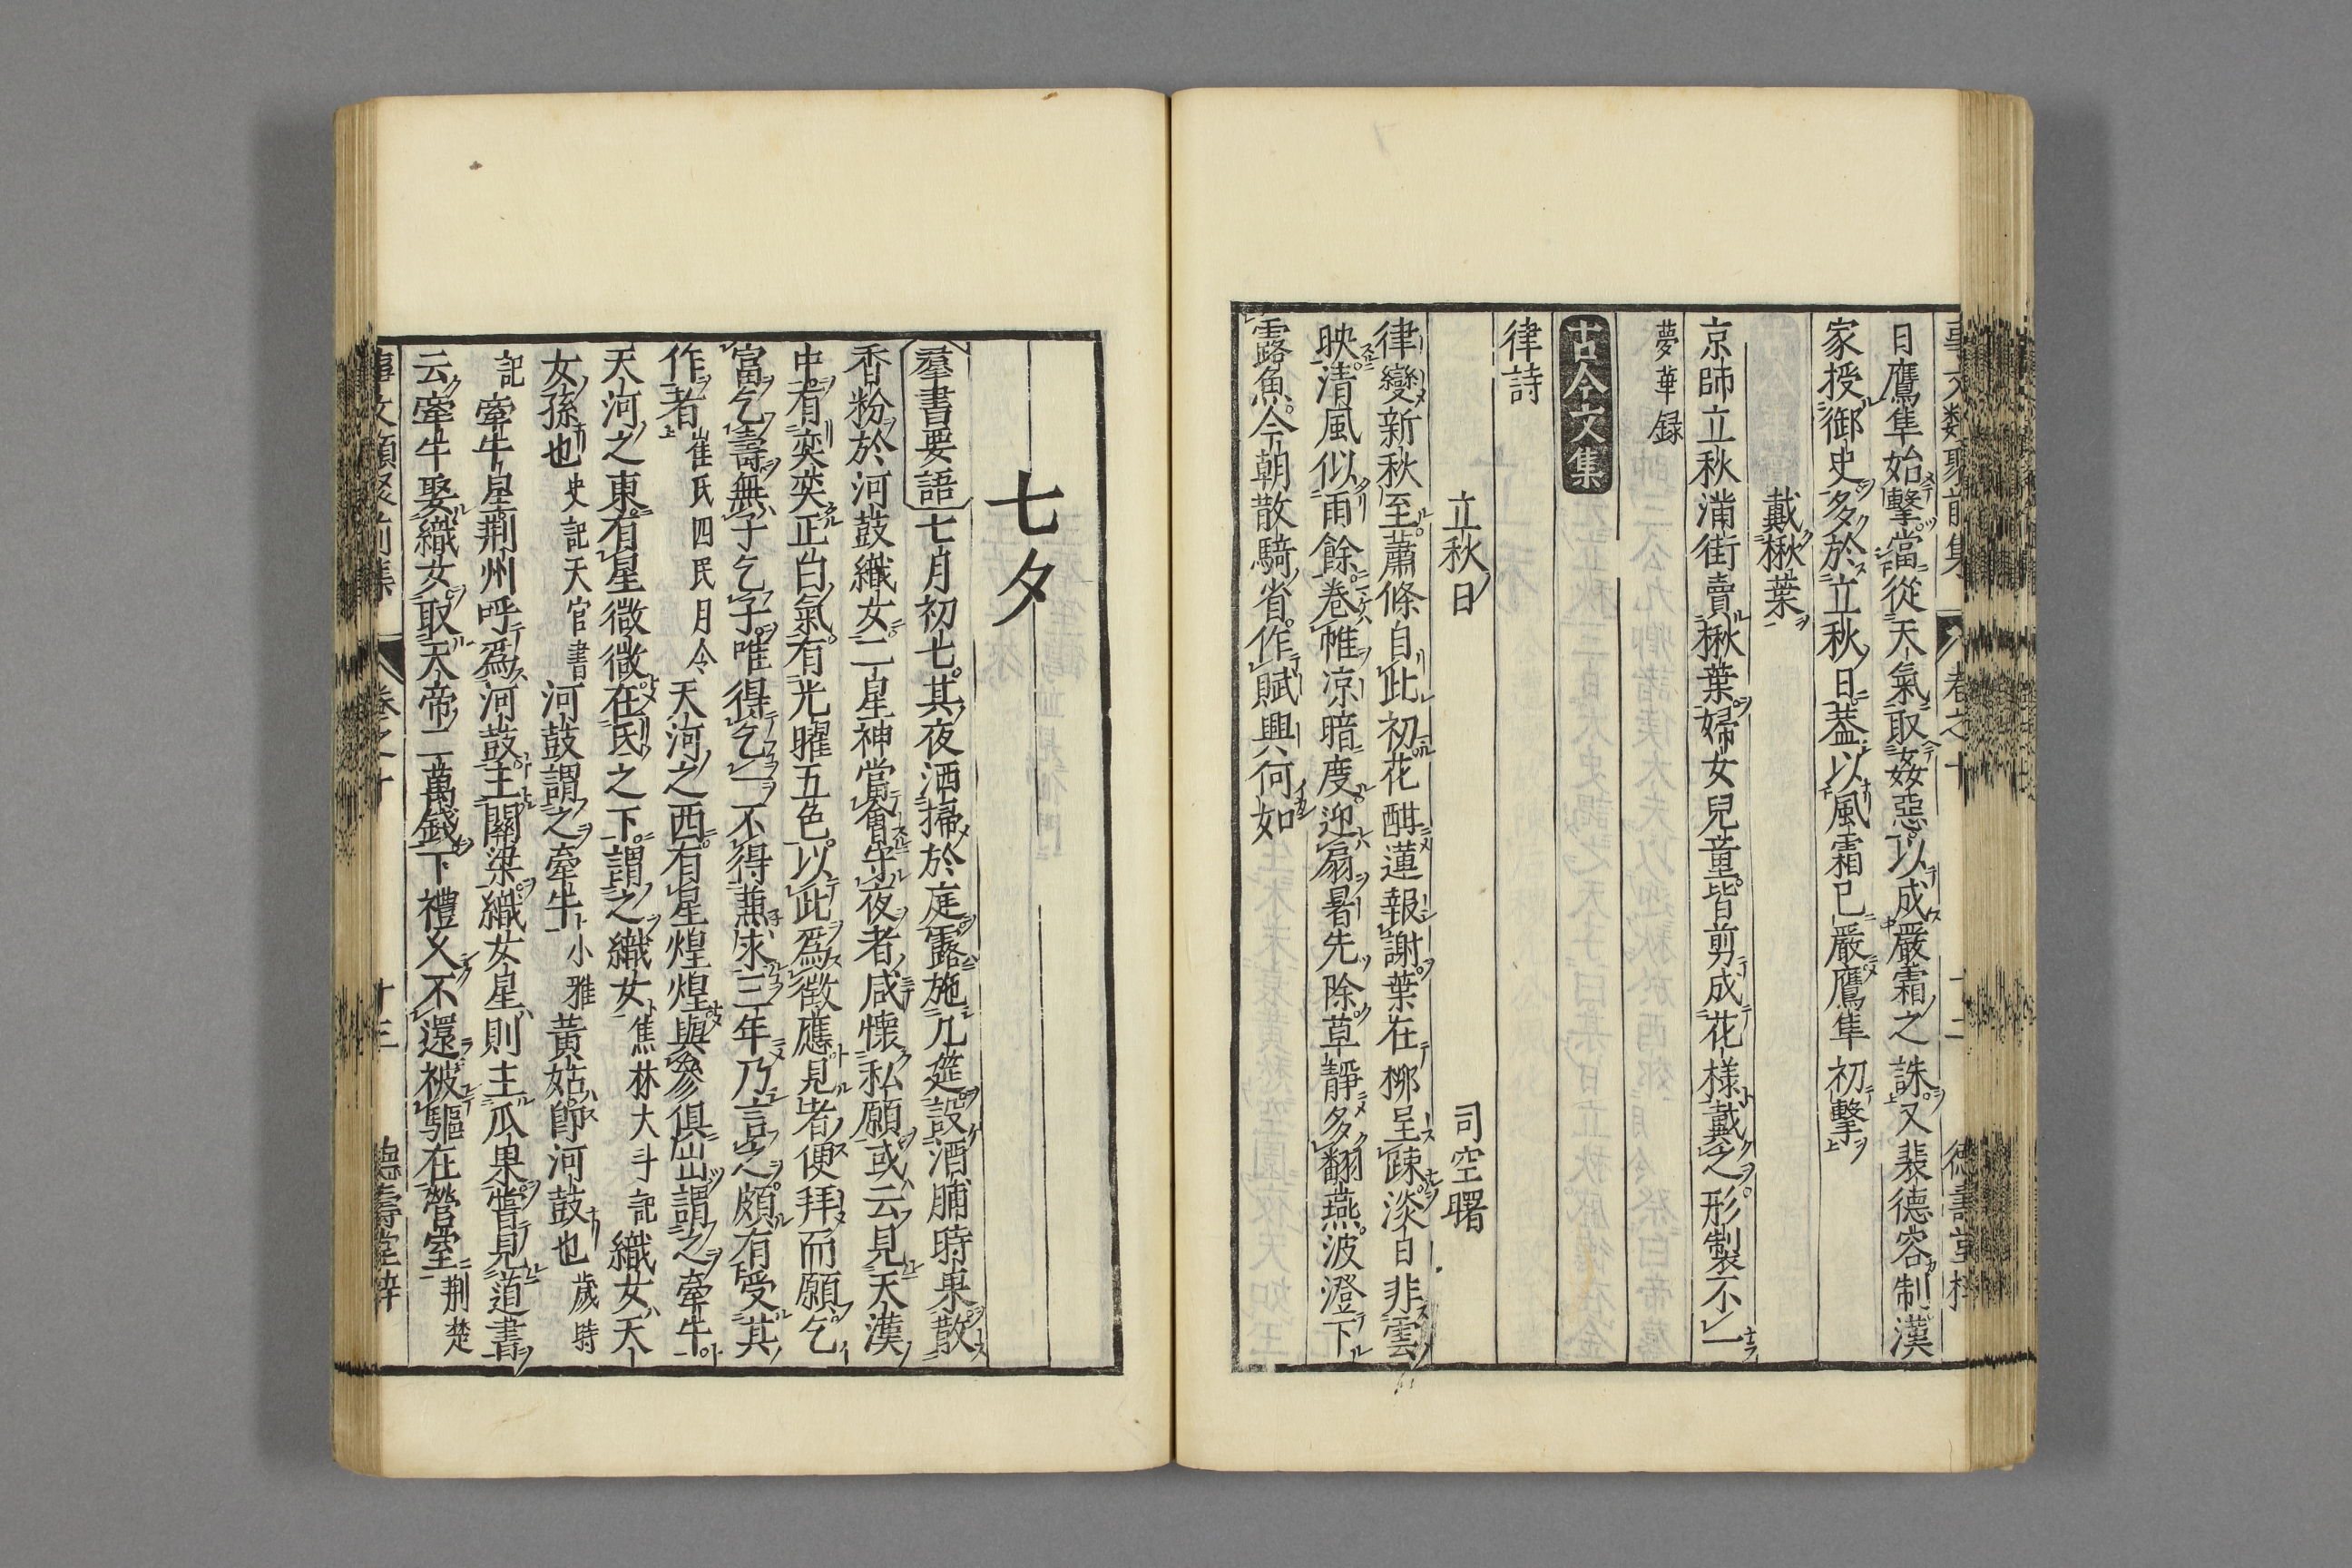 事文類聚前集 卷之十 十二 德壽堂梓
日鷹隼始擊當從天氣取姦惡以成嚴霜之誅又裴德容制漢
家授御史多於立秋日蓋以風霜已嚴鷹隼初擊
戴楸葉
京師立秋滿街賣楸葉婦女兒童皆剪成花樣戴之形製不一
夢華録
古今文集
律詩
立秋日 司空曙
律變新秋至蕭條自此初花酣蓮報謝葉在桺呈踈淡日非雲
映清風似雨餘卷帷凉暗度迎扇暑先除草靜多翻燕波澄下
露魚今朝散騎省作賦興何如
七夕
羣書要語七月初七其夜洒掃於庭露施几筵設酒脯時果散
香粉於河鼓織女二星神當會守夜者咸懷私願或云見天漢
中有奕奕正白氣有光曜五色以此爲徵應見者便拜而願乞
富乞壽無子乞子唯得乞一不得兼求三年乃言之頗有受其
作者 崔氏四民月令 天河之西有星煌煌與參俱出謂之牽牛
天河之東有星微微在氐之下謂之織女 焦林大斗記 織女天
女孫也 史記天官書 河鼓謂之牽牛 小雅 黃姑即河鼓也 歲時
記 牽牛星荆州呼爲河鼓主關梁織女星則主瓜果嘗見道書
云牽牛娶織女取天帝二萬錢下禮久不還被驅在營室 荆楚
事文類聚前集 卷之十 十三 德壽堂梓